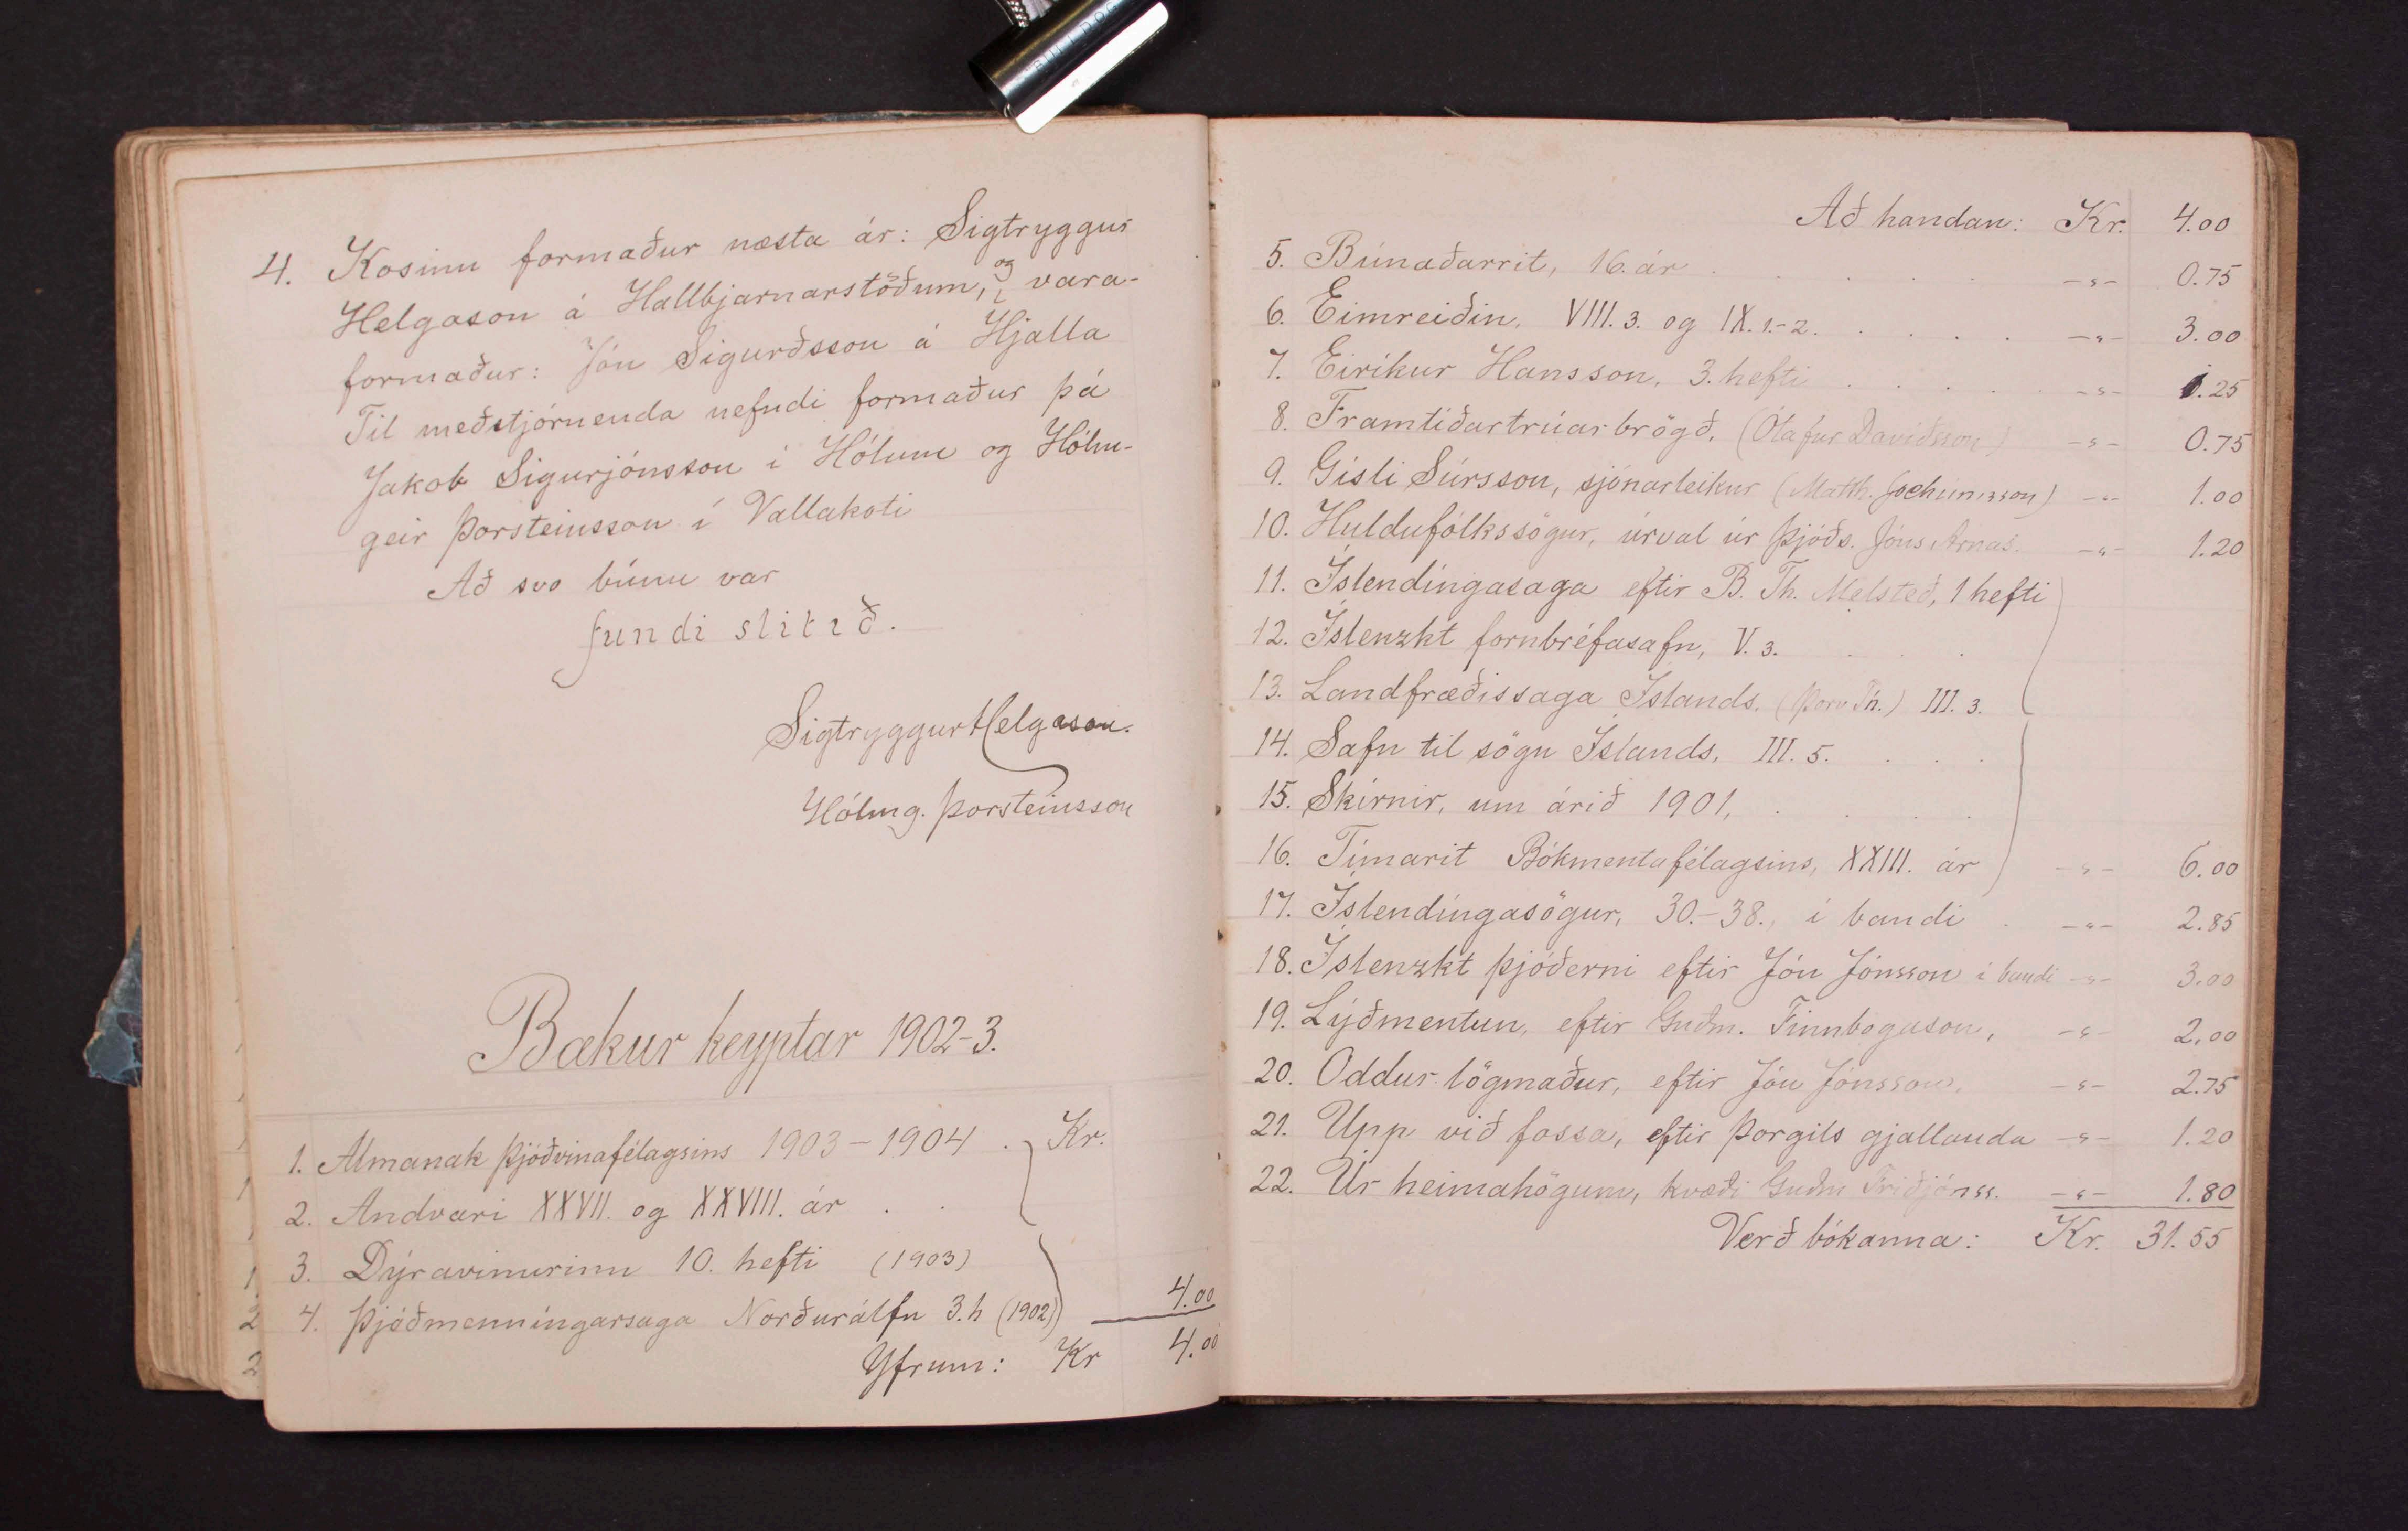 BULLDOG
4. Kosinn formaður næsta ár: Sigtryggur
Helgason á Hallbjarnarstöðum, og vara-
formaður: Jón Sigurðsson á Hjalla
Til meðstjórnenda nefndi formaður þá
Jakob Sigurjónsson í Hólum og Hólm-
geir Þorsteinsson í Vallakoti
Að svo búnu var
fundi slitið.
Sigtryggur Helgason.
Hólmg. Þorsteinsson
Bækur keyptar 1902-3.
1. Almanak Þjóðvinafélagsins 1903-1904 . Kr.
2. Andvari XXVII. og XXVIII. ár . .
3. Dýravinurinn 10. hefti (1903)
4. Þjóðmenningarsaga Norðurálfu 3.h (1902) 4.00
Yfrum: Kr 4.00
Að handan: Kr. 4.00
5. Búnaðarrit, 16. ár . . . . . -"- 0.75
6. Eimreiðin, VIII. 3. og IX. 1.-2. . . . . -"- 3.00
7. Eiríkur Hansson, 3. hefti . . . . . -"- 1.25
8. Framtíðartrúarbrögð, (Ólafur Davíðsson) -"- 0.75
9. Gísli Súrsson, sjónarleikur (Matth. Jochumsson) -"- 1.00
10. Huldufólkssögur, úrval úr Þjóðs. Jóns Arnas. -"- 1.20
11. Íslendingasaga eftir B. Th. Melsteð, 1 hefti
12. Íslenzkt fornbréfasafn, V. 3. . . .
13. Landfræðissaga Íslands. (Þorv Th.) III. 3.
14. Safn til sögu Íslands, III. 5. . . .
15. Skírnir, um árið 1901, . . . .
16. Tímarit Bókmentafélagsins, XXIII. ár -"- 6.00
17. Íslendingasögur, 30.-38., í bandi . -"- 2.85
18. Íslenzkt þjóðerni eftir Jón Jónsson í bandi -"- 3.00
19. Lýðmentun, eftir Guðm. Finnbogason, -"- 2.00
20. Oddur lögmaður, eftir Jón Jónsson, -"- 2.75
21. Upp við fossa, eftir Þorgils gjallanda -"- 1.20
22. Úr heimahögum, kvæði Guðm Friðjónss. -"- 1.80
Verð bókanna: Kr. 31.55